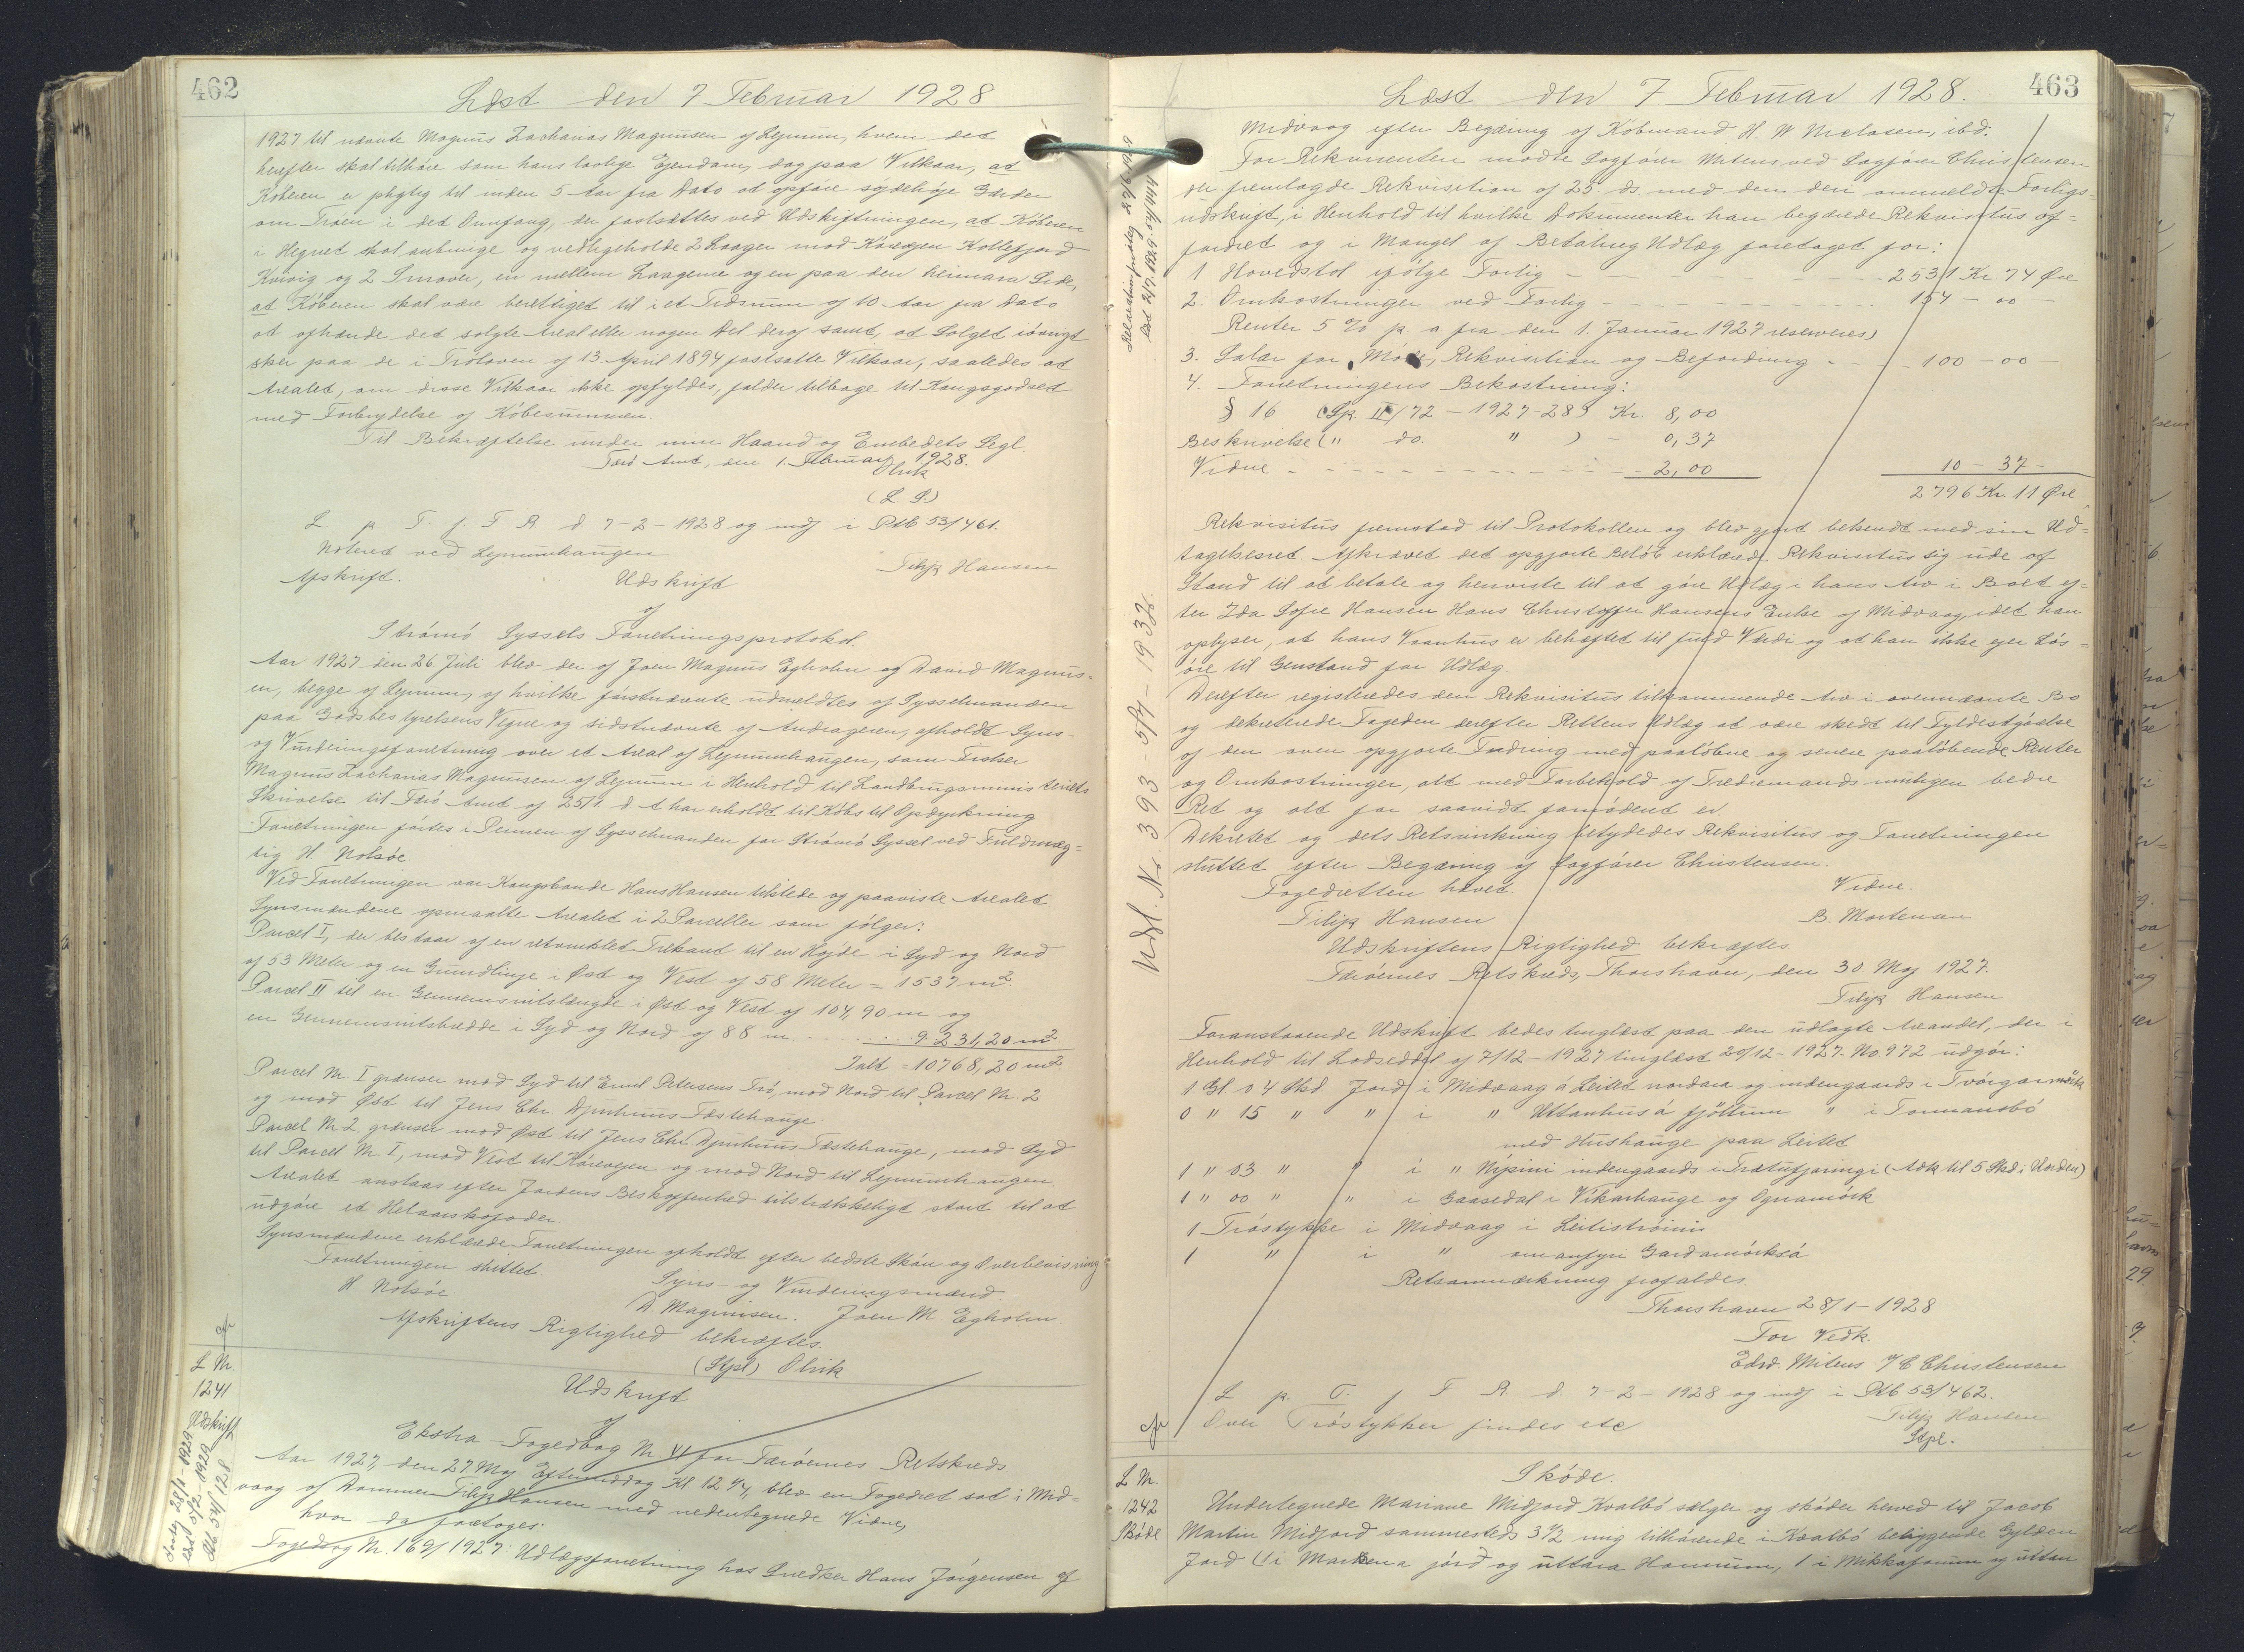 462
Læst den 7 Februar 1928
1927 til nævnte Magnus Zacharias Magnussen af Lejnum, hvem det
herefter skal tilhøre som hans lovlige Ejendom, dog paa Vilkaar, at
Køberen er pligtig til inden 5 Aar fra Dato at opføre sojdehøje Gærder
om Trøen i det Omfang, der fastsættes ved Udskiftningen, at Køberen
i Hegnet skal anbringe og vedligeholde 2 Laager mod Kørevejen Kollefjord
Kvivig og 2 Smover, en mellem Laagerne og en paa den heimara Side,
at Køberen skal være berettiget til i et Tidsrum af 10 Aar fra Dato
at afhænde det solgte Areal eller nogen Del deraf samt, at Salget iøvrigt
sker paa de i Trøloven af 13. April 1894 fastsatte Vilkaar, saaledes at
Arealet, om disse Vilkaar ikke opfyldes, falder tilbage til Kongsgodset
med Forbrydelse af Købesummen.
Til Bekræftelse under min Haand og Embedets Segl.
Færø Amt, den 1. Februar 1928.
Olrik
(L. S.)
L. p. T. f. F. R. d. 7-2-1928 og indf i Ptb 53/461.
Noteret ved Lejnumhaugen
Filip Hansen
Afskrift.
Udskrift
af
Strømø Syssels Forretningsprotokol.
Aar 1927 den 26 Juli blev der af Joen Magnus Egholm og David Magnus-
en, begge af Lejnum, af hvilke førstnævnte udmeldtes af Sysselmanden
paa Godsbestyrelsens Vegne og sidstnævnte af Andrageren, afholdt Syns-
og Vurderingsforretning over et Areal af Lejnumhaugen, som Fisker
Magnus Zacharias Magnussen af Lejnum i Henhold til Landbrugsministeriets
Skrivelse til Færø Amt af 25/7 d A har erholdt til Købs til Opdyrkning
Forretningen førtes i Pennen af Sysselmanden for Strømø Syssel ved Fuldmæg-
tig H. Nolsøe.
Ved Forretningen var Kongsbonde Hans Hansen tilstede og paaviste Arealet
Synsmændene opmaalte Arealet i 2 Parceller som følger:
Parcel I, der bestaar af en retvinklet Trekant til en Højde i Syd og Nord
af 53 Meter og en Grundlinje i Øst og Vest af 58 Meter = 1537 m².
Parcel II til en Gennemsnitslængde i Øst og Vest af 104,90 m og
en Gennemsnitsbredde i Syd og Nord af 88 m ........ 9231,20 m²
Ialt = 10768,20 m²
Parcel Nr. I grænser mod Syd til Emil Petersens Trø, mod Nord til Parcel Nr. 2
og mod Øst til Jens Chr. Djurhuus Fæstehauge.
Parcel Nr 2 grænser mod Øst til Jens Chr. Djurhuus Fæstehauge, mod Syd
til Parcel Nr I, mod Vest til Kørevejen og mod Nord til Lejnumhaugen.
Arealet anslaas efter Jordens Beskaffenhed tilstrækkeligt stort til at
udgøre et Helaarskofoder.
Synsmændene erklærede Forretningen afholdt efter bedste Skøn og Overbevisning
Forretningen sluttet
H Nolsøe
Syns- og Vurderingsmænd.
D. Magnusen. Joen M. Egholm.
Afskriftens Rigtighed bekræftes.
(Stpl) Olrik
L Nr.
1241
Udskrift
Udskrift
af
Ekstra-Fogedbog Nr VI for Færøernes Retskreds
Aar 1927, den 27. Maj Eftermiddag Kl 12¼, blev en Fogedret sat i Mid-
vaag af Dommer Filip Hansen med nedentegnede Vidne,
hvor da foretoges:
Fogedsag Nr. 169/1927: Udlægsforretning hos Snedker Hans Jørgensen af
463
Læst den 7 Februar 1928.
Midvaag efter Begæring af Købmand H. W Niclasen, ibd.
For Rekvirenten mødte Sagfører Mitens ved Sagfører Christensen
der fremlagde Rekvisition af 25. ds. med den deri ommeldte Forligs-
udskrift, i Henhold til hvilke Dokumenter han begærede Rekvisitus af-
fordret og i Mangel af Betaling Udlæg foretaget for:
1 Hovedstol ifølge Forlig - - - 2531 Kr 74 Øre
2. Omkostninger ved Forlig - - - 154 - 00 -
Renter 5 % p. a fra den 1. Januar 1927 reserveres)
3. Salær for Møde, Rekvisition og Befordring - - 100 - 00 -
4. Forretningens Bekostning:
§ 16 (Sp. II/72 - 1927-28) Kr. 8,00
Beskrivelse (" do. " ) - 0,37
Vidne - - - 2,00 10 - 37 -
2796 Kr. 11 Øre
Rekvisitus fremstod til Protokollen og blev gjort bekendt med sin Ud-
tagelsesret. Afkrævet det opgjorte Beløb erklærede Rekvisitus sig ude af
Stand til at betale og henviste til at gøre Udlæg i hans Arv i Boet ef-
ter Ida Sofie Hansen Hans Christoffer Hansens Enke af Midvaag, idet han
oplyser, at hans Vaanhus er behæftet til fuld Værdi og at han ikke ejer Løs-
øre til Genstand for Udlæg.
Derefter registreredes den Rekvisitus tilkommende Arv i ovennævnte Bo
og dekreterede Fogeden derefter Rettens Udlæg at være skedt til Fyldestgørelse
af den oven opgjorte Fordring med paaløbne og senere paaløbende Renter
og Omkostninger, alt med Forbehold af Trediemands muligen bedre
Ret og alt for saavidt fornødent er.
Dekretet og dets Retsvirkning betydedes Rekvisitus og Forretningen
sluttet efter Begæring af Sagfører Christensen.
Fogedretten hævet. Vidne.
Filip Hansen B. Mortensen
Udskriftens Rigtighed bekræftes
Færøernes Retskreds, Thorshavn, den 30 Maj 1927.
Filip Hansen
Foranstaaende Udskrift bedes tinglæst paa den udlagte Arvandel, der i
Henhold til Lodseddel af 7/12-1927 tinglæst 20/12-1927. No. 972 udgør:
1 Gl 04 Skd. Jord i Midvaag á Leitet nordara og indengaards i Tvørgarmørk
0 " 15 " " i " Uttanhus á fjøllum " i Tormansbø
med Hushauge paa Leitet
1 " 03 " " i " Nýsini indengaards i Trætufjøringi (Adk til 5 Skd i Hørden)
1 " 00 " " i Gaasedal i Vikarhauge og Ognamørk
1 Trøstykke i Midvaag i Leitistrøini
1 " i " omanfyri Gardamørksá
Retsanmærkning frafaldes.
Thorshavn 28/1-1928
For Vedk.
Edvd. Mitens / C Christensen
L p. T. f F R. d. 7-2-1928 og indf i Ptb 53/462.
Over Trøstykker findes etc
Filip Hansen
Stpl.
Udsl Nr. 393 - 5/4 - 1932.
L Nr.
1242
Skøde
Skøde.
Undertegnede Mariane Midjord Kvalbø sælger og skøder herved til Jacob
Martin Midjord sammesteds 3½ mig tilhørende i Kvalbø beliggende Gylden
Jord (1 i Markena jørð og úttara Hamrum, 1 i Mikkafanum og uttan